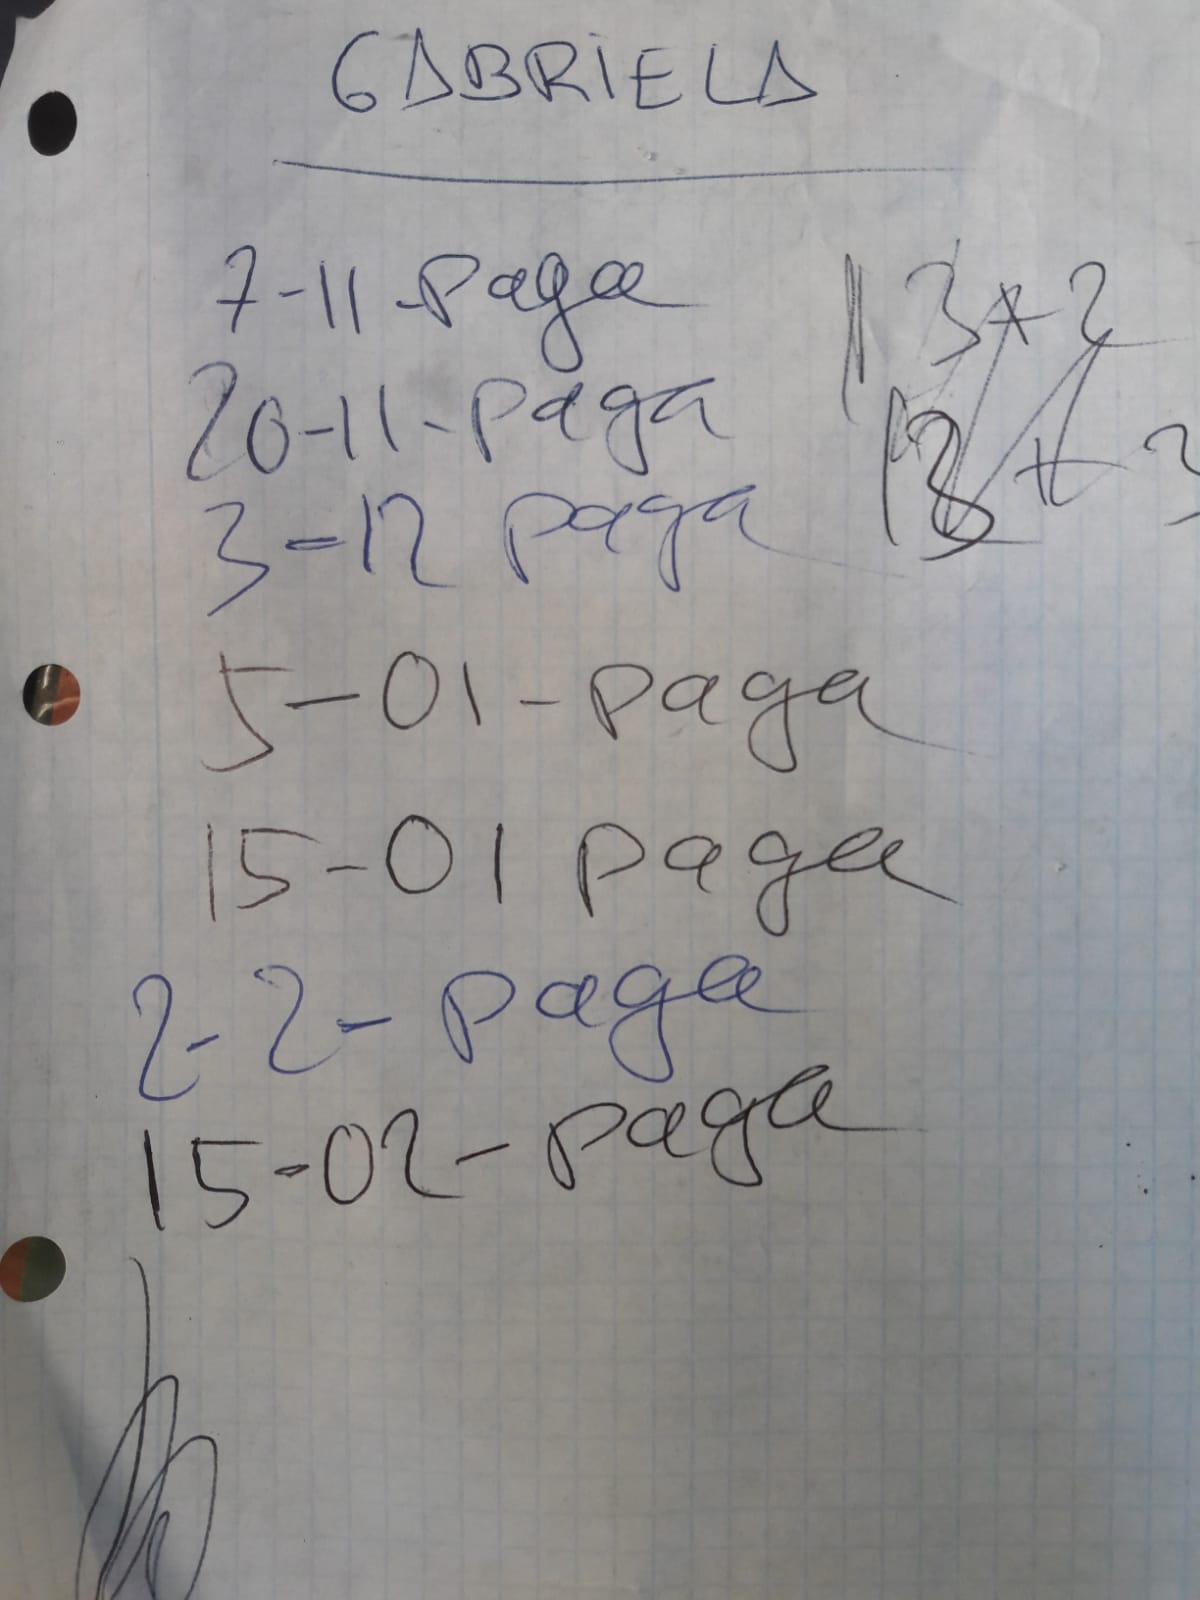 GABRIELA
7-11-paga
20-11-paga
3-12 paga
5-01-paga
15-01 paga
2-2-paga
15-02-paga